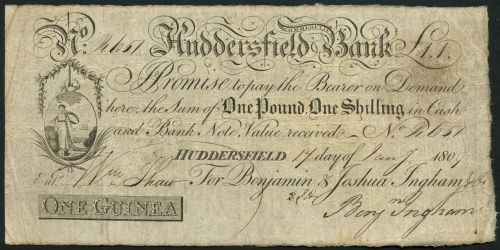 No. R651 Huddersfield Commercial Bank £1.1.
I Promise to pay the Bearer on Demand
here, the Sum of One Pound, One Shilling in Cash
and Bank Note, Value received — No. R651
HUDDERSFIELD 17 day of Jany 180
Entd. Wm Shaw For Benjamin & Joshua Ingham & Co
ONE GUINEA Benjn Ingham